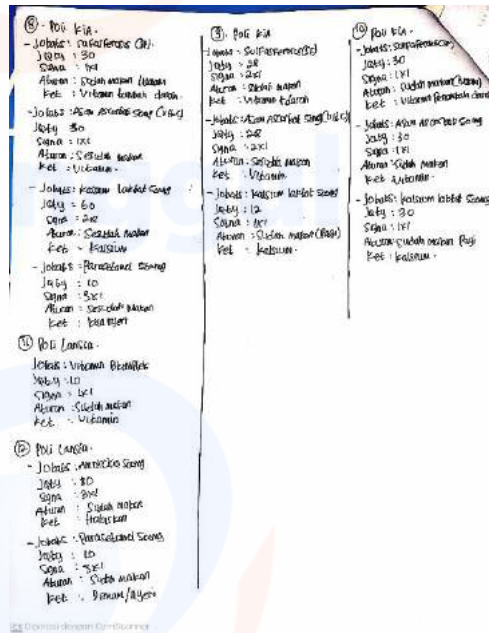 ⑧ - Poli KIA
- Jobats : Sulfasferosis (Bi).
Jqty : 30
Signa : 1x1
Aturan : Sudah makan (Malam)
Ket : Vitamin tambah darah
- Jobats : Asam Ascorbat 50mg (vit C)
Jqty 30
Signa : 1x1
Aturan : Sesudah makan
Ket : Vitamin.
- Jobats : Kalsium laktat 500mg
Jqty = 60
Signa = 2x1
Aturan : Sesudah makan
Ket - Kalsium
- Jobats : Parasetamol 500mg
Jqty : 10
Signa : 3x1
Aturan : Sesudah makan
Ket : Nyeri
⑪ Poli Lansia.
Jobats : Vitamin B komplek
Jqty : 10
Signa : 1x1
Aturan : Sudah makan
Ket : Vitamin
⑫ Poli Lansia.
- Jobats : Amoxicilin 500mg
Jqty : 10
Signa : 3x1
Aturan : Sudah makan
Ket : Habiskan
- Jobats : Parasetamol 500mg
Jqty : 10
Signa : 3x1
Aturan : Sudah makan
Ket : Demam/Nyeri
⑨ . Poli KIA
Jobats : Sulfasferosis (Bi)
Jqty : 28
Signa : 2x1
Aturan : Sudah makan
Ket : Vitamin t.darah
- Jobats : Asam Ascorbat 50mg (vit C)
Jqty : 28
Signa : 2x1
Aturan : Sesudah makan
Ket : Vitamin.
- Jobats : Kalsium laktat 500mg
Jqty : 12
Signa : 1x1
Aturan : Sudah makan (Pagi)
Ket : Kalsium.
⑩ Poli KIA.
- Jobats : Sulfasferosis (Bi)
Jqty : 30
Signa : 1x1
Aturan : Sudah makan (Malam)
Ket : Vitamin Penambah darah
- Jobats : Asam Ascorbat 50mg
Jqty : 30
Signa : 1x1
Aturan : Sudah makan
Ket : Vitamin.
- Jobats : Kalsium laktat 500mg
Jqty : 30
Signa : 1x1
Aturan : Sudah makan Pagi
Ket : Kalsium.
Dipindai dengan CamScanner